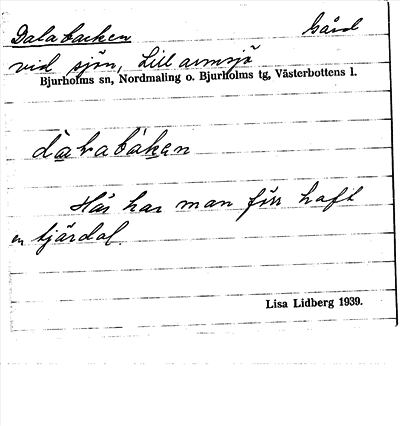 Dalabacken gård
vid sjön, Lill armsjö
Bjurholms sn, Nordmaling o. Bjurholms tg, Västerbottens l.
Här har man förr haft
en tjärdal.
Lisa Lidberg 1939.